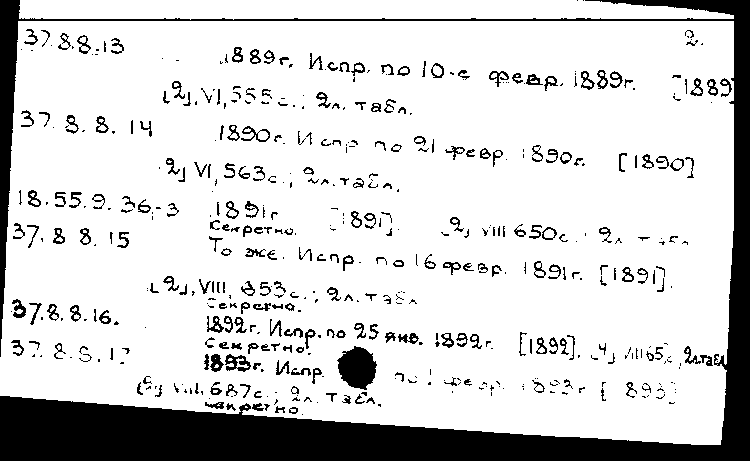 2.
37.8.8.13 1889г. Испр. по 10-е февр. 1889г. [1889]
[2], VI, 555с.; 2л. табл.
37.8.8.14 1890г. Испр по 21 февр. 1890г. [1890]
[2] VI, 563с.; 2л. табл.
18.55.9.36-3 1891г [1891]. [2], VIII 650с.; 2л табл
Секретно.
37.8 8.15 То же. Испр. по 16 февр. 1891г. [1891].
[2], VIII, 653с.; 2л. табл
Секретно.
37.8.8.16. 1892г. Испр. по 25 янв. 1892г. [1892]. VIII 2л табл
Секретно.
37.8.8.17 1893г. Испр. по 1 февр. 1893г [1893]
[2], VIII, 687с.; 2л. табл.
Секретно.